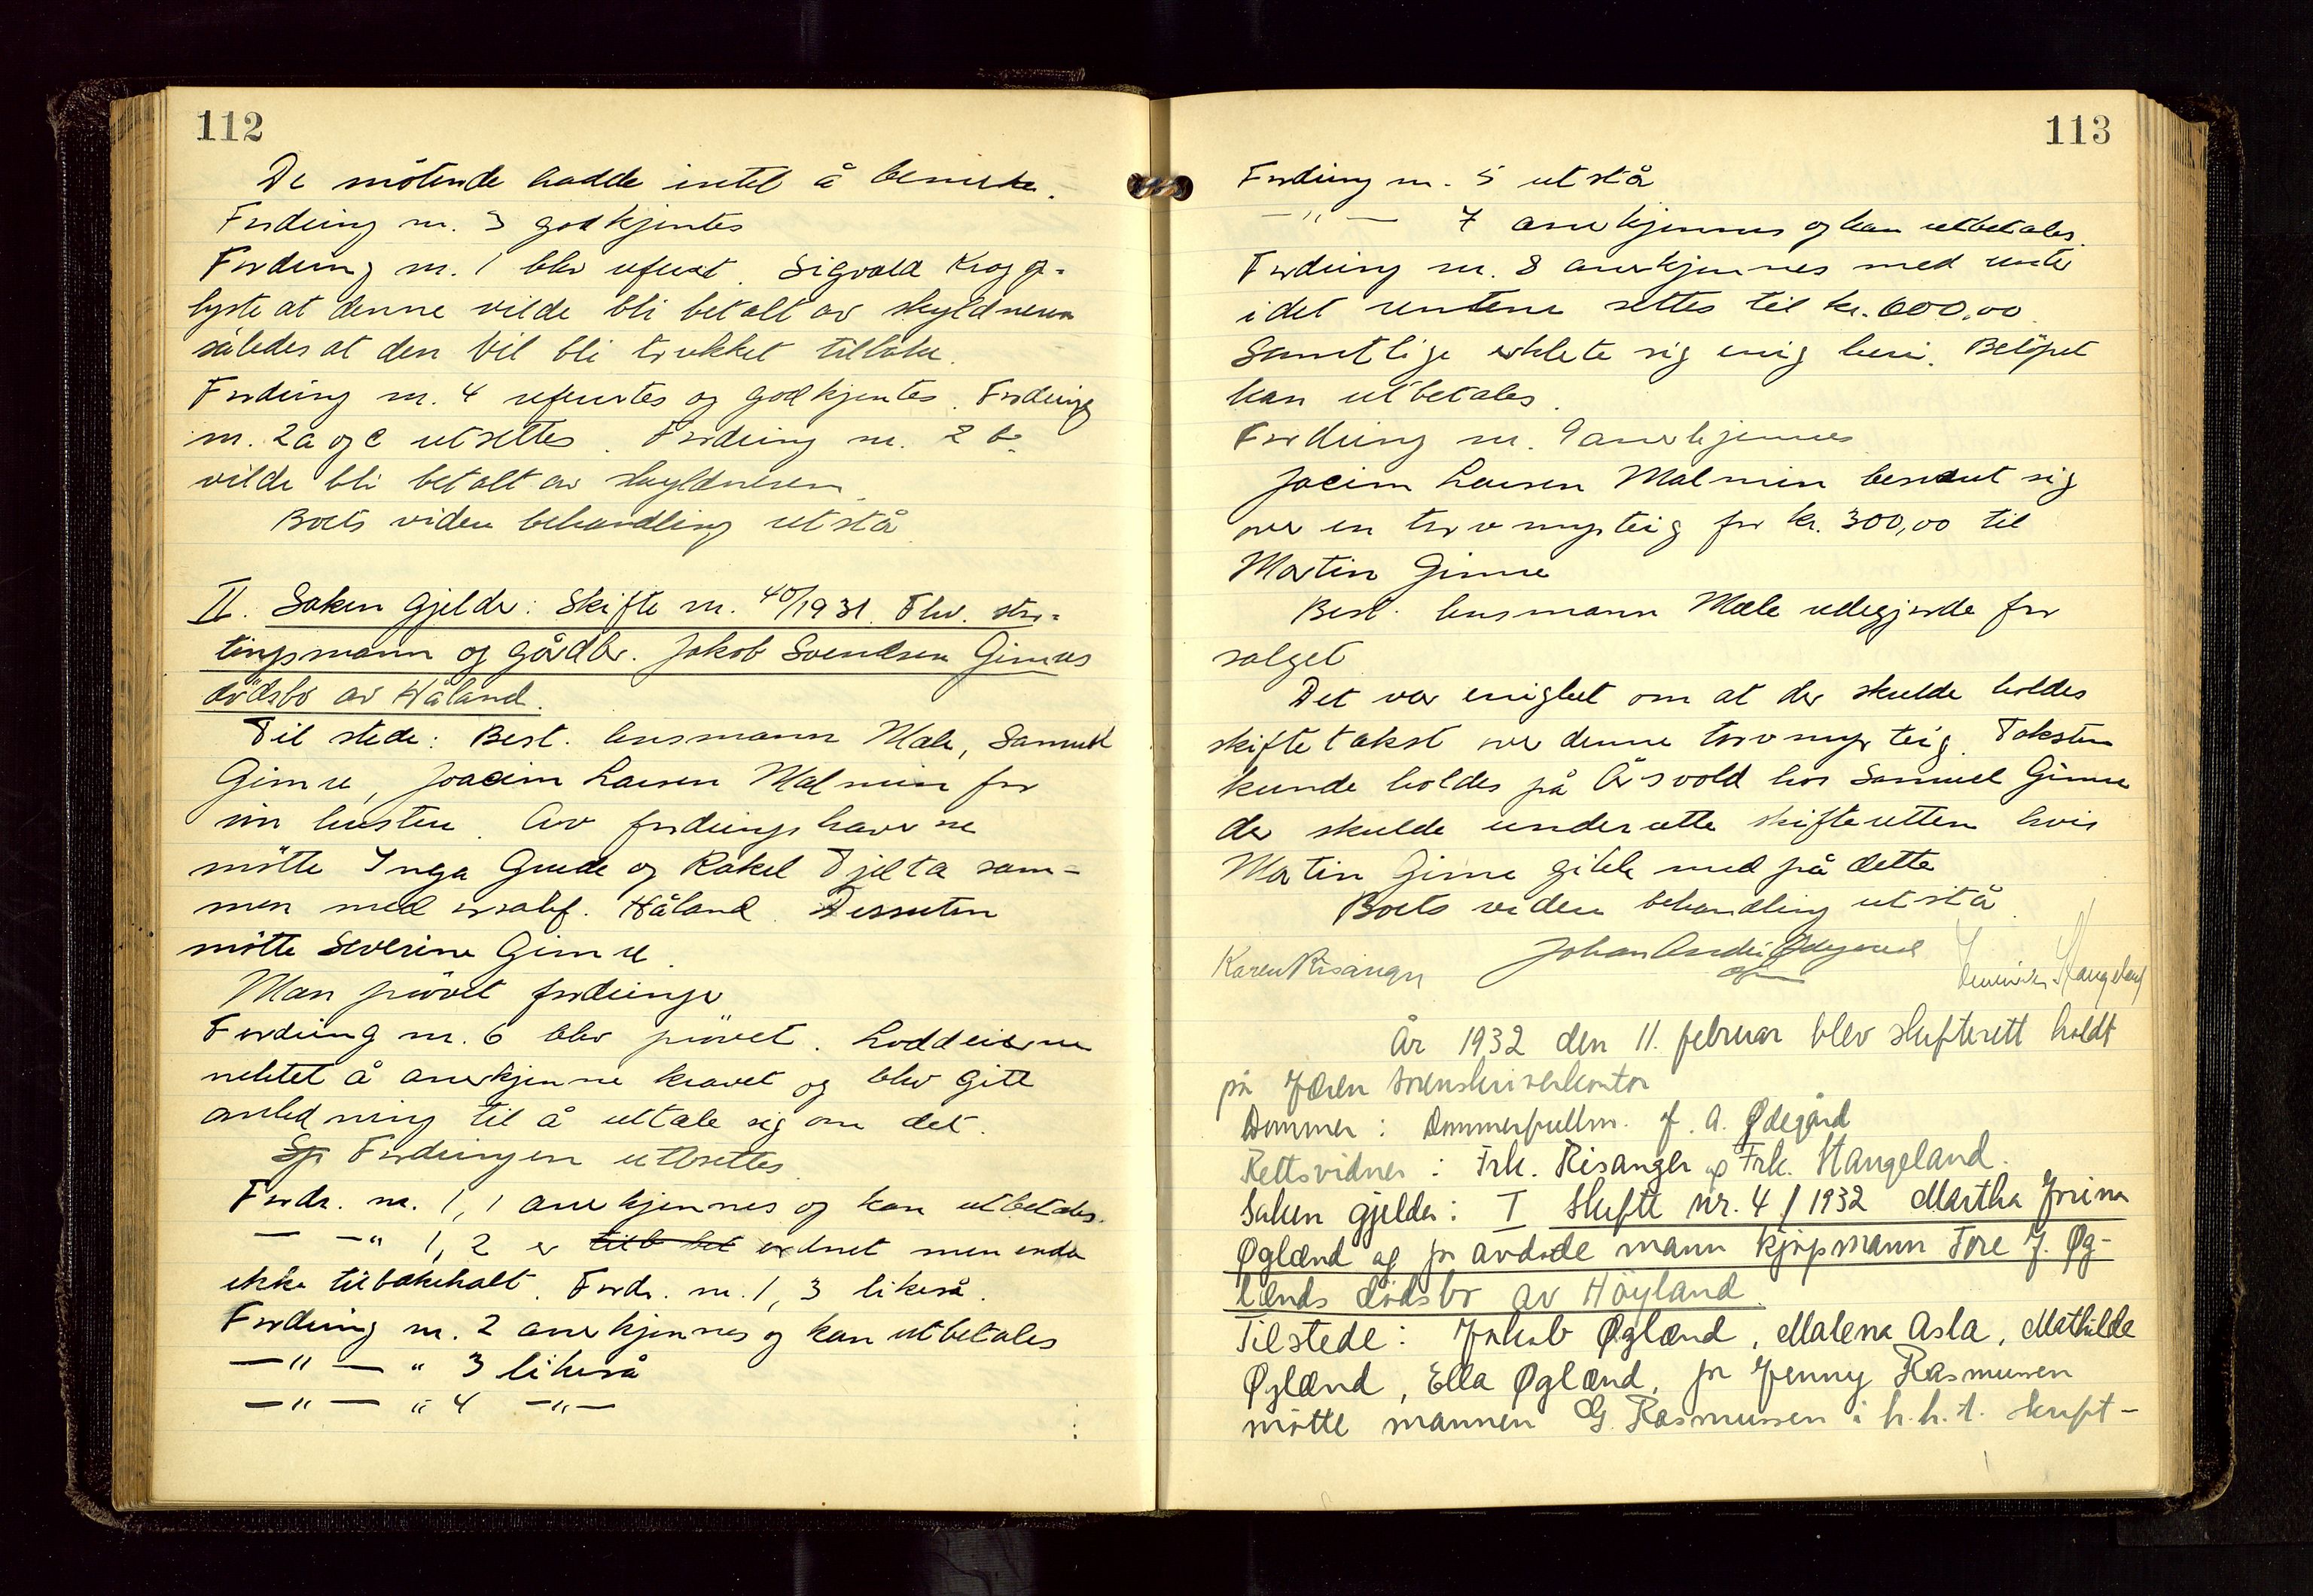 112
De møtende hadde intet å bemerke.
Fordring nr. 3 godkjentes
Fordring nr. 1 blev referert. Sigvald Krog op-
lyste at denne vilde bli betalt av skyldneren
således at den vil bli trukket tilbake.
Fordring nr. 4 refertes og godkjentes. Fordring
nr. 2a og c utsettes. Fordring nr. 2 b.
vilde bli betalt av skyldneren.
Boets videre behandling utstår.
II. Saken gjelder: Skifte nr. 40/1931. Fhv. stor-
tingsmann og gårdbr. Jakob Svendsen Gimres
dødsbo av Håland.
Til stede: Best. lensmann Mæle, Samuel
Gimre, Joacim Larsen Malmin for
sin hustru. Av fordringshaverne
møtte Inga Grude og Rakel Tjelta sam-
men med o.r.sakf. Håland. Dessuten
møtte Severine Gimre.
Man prøvet fordringer
Fordring nr. 6 blev prøvet. Loddeierne
nektet å anerkjenne kravet og blev gitt
anledning til å uttale sig om det.
Sp Fordringen utsettes
Fordr. nr. 1, 1 anerkjennes og kan utbetales.
— -" 1, 2 er tilb bet ordnet men enda
ikke tilbakekalt. Fordr. nr. 1, 3 likeså.
Fordring nr. 2 anerkjennes og kan utbetales
—"— " 3 likeså
—"— " 4 -"-
113
Fordring nr. 5 utstår
—"— 7 anerkjennes og kan utbetales.
Fordring nr. 8 anerkjennes med renter
idet rentene settes til kr. 600,00.
Samtlige erklærte sig enig heri. Beløpet
kan utbetales.
Fordring nr. 9 anerkjennes
Jocim Larsen Malmin besvært sig
over en torvmyrteig for kr. 300,00 til
Martin Gimre
Best. lensmann Mæle redegjorde for
salget
Det var enighet om at der skulde holdes
skiftetakst over denne torvmyrteig. Taksten
kunde holdes på Åsvold hos Samuel Gimre
der skulde underrette skifteretten hvis
Martin Gimre gikk med på dette
Boets videre behandling utstår.
Karen Risanger Johan Andr. Ødegaard Stangeland
År 1932 den 11. februar blev skifterett holdt
på Jæren sorenskriverkontor
Dommer: Dommerfullm. J. A. Ødegård
Rettsvidner: Frk. Risanger og Frk. Stangeland.
Saken gjelder: I Skifte nr. 4/1932 Martha Jorina
Øglænd og før avdøde mann kjøpmann Tore J. Øg-
lænds dødsbo av Høyland.
Tilstede: Jakob Øglænd, Malena Asla, Mathilde
Øglænd, Ella Øglænd, for Jenny Rasmussen
møtte mannen G. Rasmussen i h.h.t. skrift-